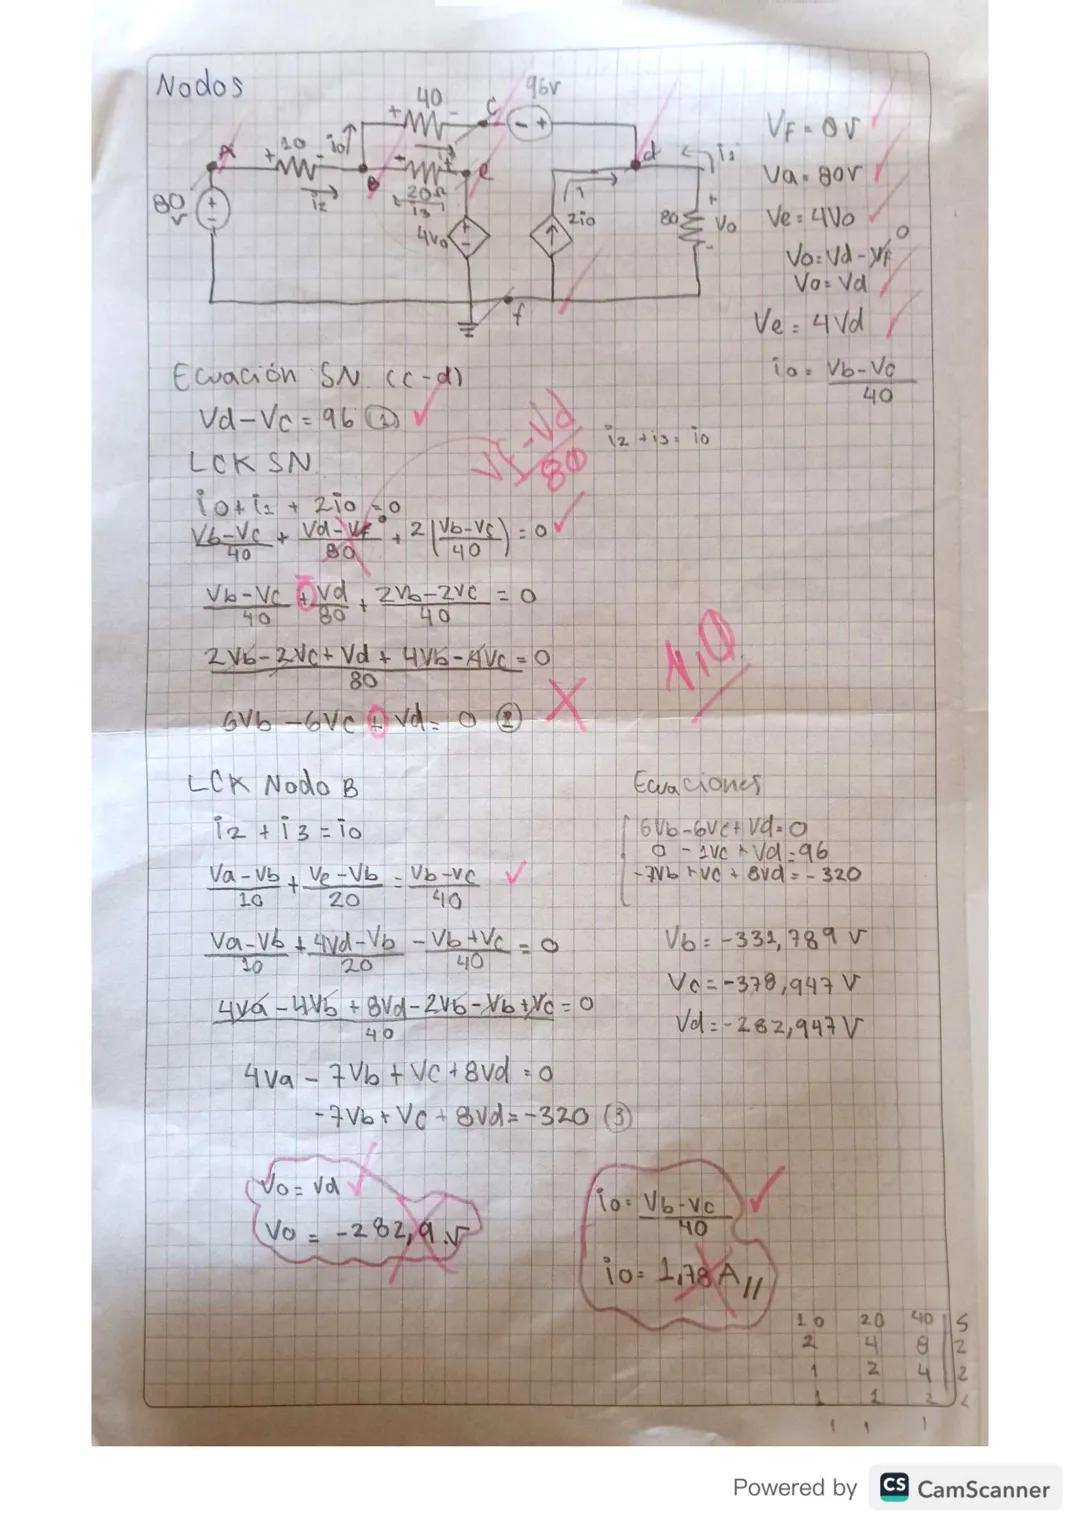 Nodos
40
96v
+ -
c
- +
A
+ 10 -
io
i2
B
20Ω
i3
e
d
i1
80 v
4Vo
2io
80
Vo
f
VF = 0V
Va = 80V
Ve = 4Vo
Vo = Vd - VF 0
Vo = Vd
Ve = 4Vd
io = Vb-Vc
40
Ecuación SN (c-d)
Vd - Vc = 96 ①
Vf-Vd
80
i2 + i3 = io
LCK SN
io + i1 + 2io = 0
Vb-Vc + Vd-Vf 0 + 2 (Vb-Vc) = 0
40 80 40
Vb-Vc + Vd + 2Vb-2Vc = 0
40 80 40
2Vb-2Vc+Vd+4Vb-4Vc = 0
80
6Vb - 6Vc + Vd = 0 ②
LCK Nodo B
i2 + i3 = io
Va-Vb + Ve-Vb = Vb-Vc
10 20 40
Va-Vb + 4Vd-Vb - Vb+Vc = 0
10 20 40
4Va-4Vb+8Vd-2Vb-Vb+Vc = 0
40
4Va - 7Vb + Vc + 8Vd = 0
-7Vb + Vc + 8Vd = -320 ③
Ecuaciones
6Vb-6Vc+Vd=0
0 -1Vc+Vd=96
-7Vb+Vc+8Vd=-320
Vb = -331,789 V
Vc = -378,947 V
Vd = -282,947 V
Vo = Vd
Vo = -282,9 V
io = Vb-Vc
40
io = 1,78 A //
10 20 40 5
2 4 8 2
1 2 4 2
1 1 2 2
1 1 1
Powered by CS CamScanner